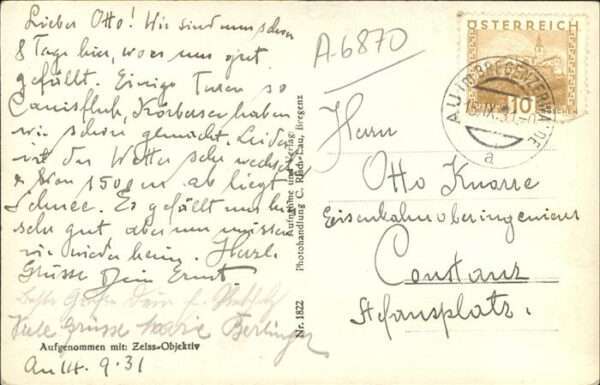 Lieber Otto! Wir sind nun schon
8 Tage hier, wo es uns gut
gefällt. Einige Turen so
Canisfluh, Körbersee haben
wir schon gemacht. Leider
ist das Wetter sehr wechselh.
Von 1500 m ab liegt
Schnee. Es gefällt uns hier
sehr gut aber nun müssen
wir wieder heim. Herzl.
Grüsse Dein Ernst
Beste Grüße Dein
Viele Grüsse Marie Berlinger
Aufgenommen mit: Zeiss-Objektiv
Au 14. 9. 31
Nr. 1822
Aufnahme und Verlag:
Photohandlung C. Risch-Lau, Bregenz
A-6870
ÖSTERREICH
10
AU IM BREGENZERWALDE
a
Herrn
Otto Knorre
Eisenbahnoberingenieur
Constanz
Stefansplatz.